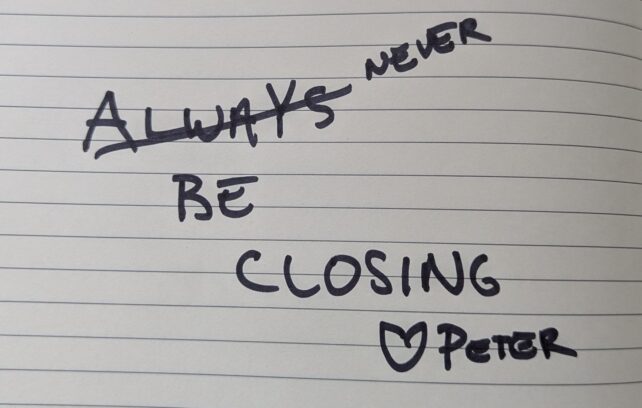 ALWAYS NEVER
BE
CLOSING
♡ PETER